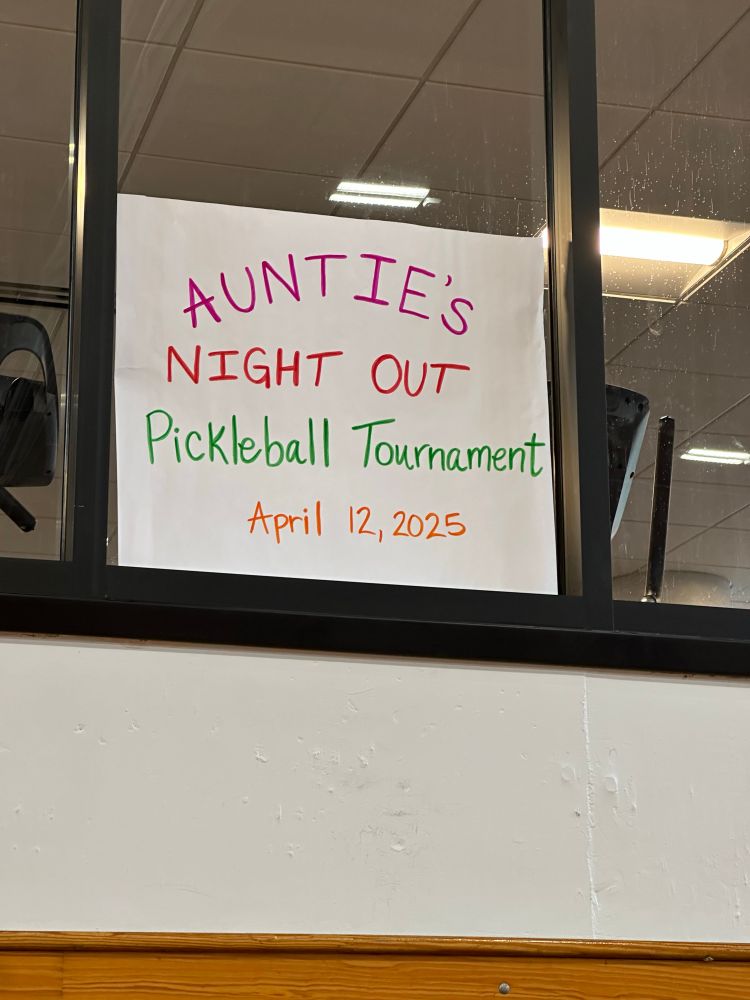 AUNTIE'S
NIGHT OUT
Pickleball Tournament
April 12, 2025